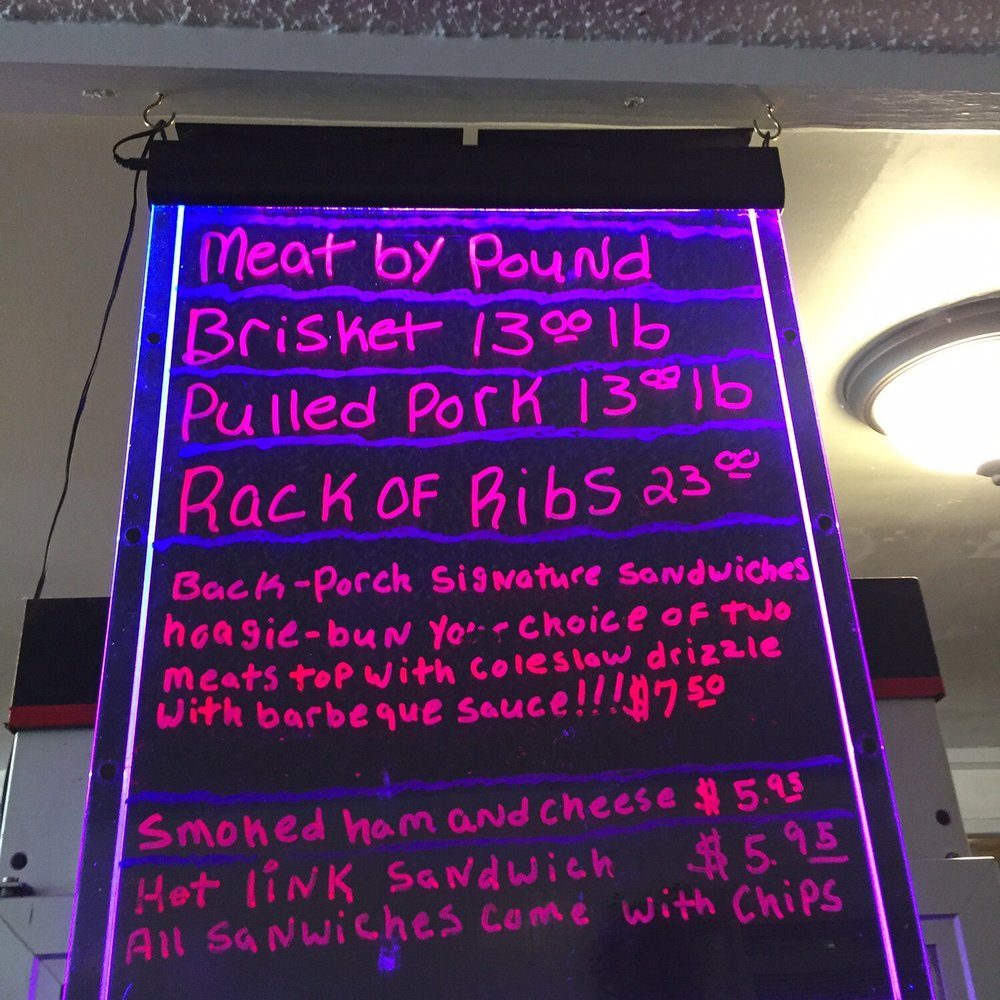 Meat by Pound
Brisket 13 00 lb
Pulled Pork 13 00 lb
Rack OF Ribs 23 00
Back-Porch Signature Sandwiches
hoagie-bun Your choice of two
meats top with coleslaw drizzle
with barbeque sauce!!! $7 50
Smoked ham and cheese $5.95
Hot link Sandwich $5.95
All sanwiches come with Chips